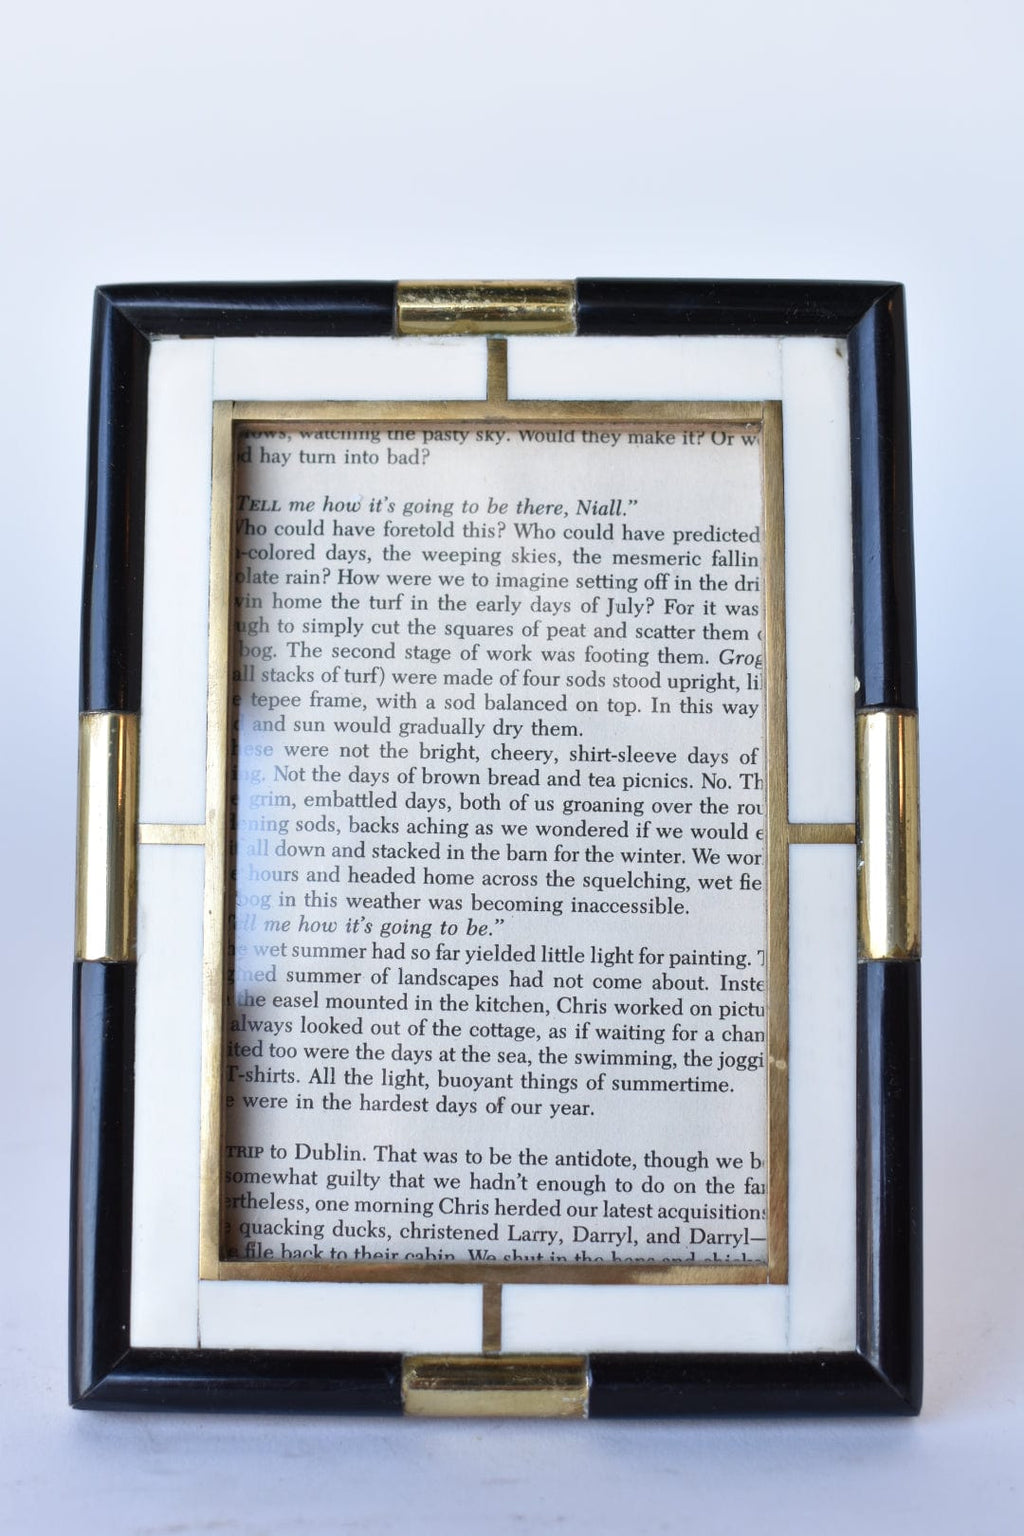 watching the pasty sky. Would they make it? Or
hay turn into bad?
TELL me how it's going to be there, Niall."
ho could have foretold this? Who could have predicted
-colored days, the weeping skies, the mesmeric fallin
olate rain? How were we to imagine setting off in the dri
home the turf in the early days of July? For it was
ugh to simply cut the squares of peat and scatter them
bog. The second stage of work was footing them. Grog
all stacks of turf) were made of four sods stood upright, li
tepee frame, with a sod balanced on top. In this way
and sun would gradually dry them.
ese were not the bright, cheery, shirt-sleeve days of
g. Not the days of brown bread and tea picnics. No. Th
grim, embattled days, both of us groaning over the rou
ening sods, backs aching as we wondered if we would e
all down and stacked in the barn for the winter. We wor
hours and headed home across the squelching, wet fie
bog in this weather was becoming inaccessible.
ell me how it's going to be."
wet summer had so far yielded little light for painting. T
gined summer of landscapes had not come about. Inste
the easel mounted in the kitchen, Chris worked on pictu
always looked out of the cottage, as if waiting for a chan
ited too were the days at the sea, the swimming, the joggi
T-shirts. All the light, buoyant things of summertime.
e were in the hardest days of our year.
TRIP to Dublin. That was to be the antidote, though we b
somewhat guilty that we hadn't enough to do on the far
ertheless, one morning Chris herded our latest acquisitions
quacking ducks, christened Larry, Darryl, and Darryl—
file back to their cabin. We shut in the hens and